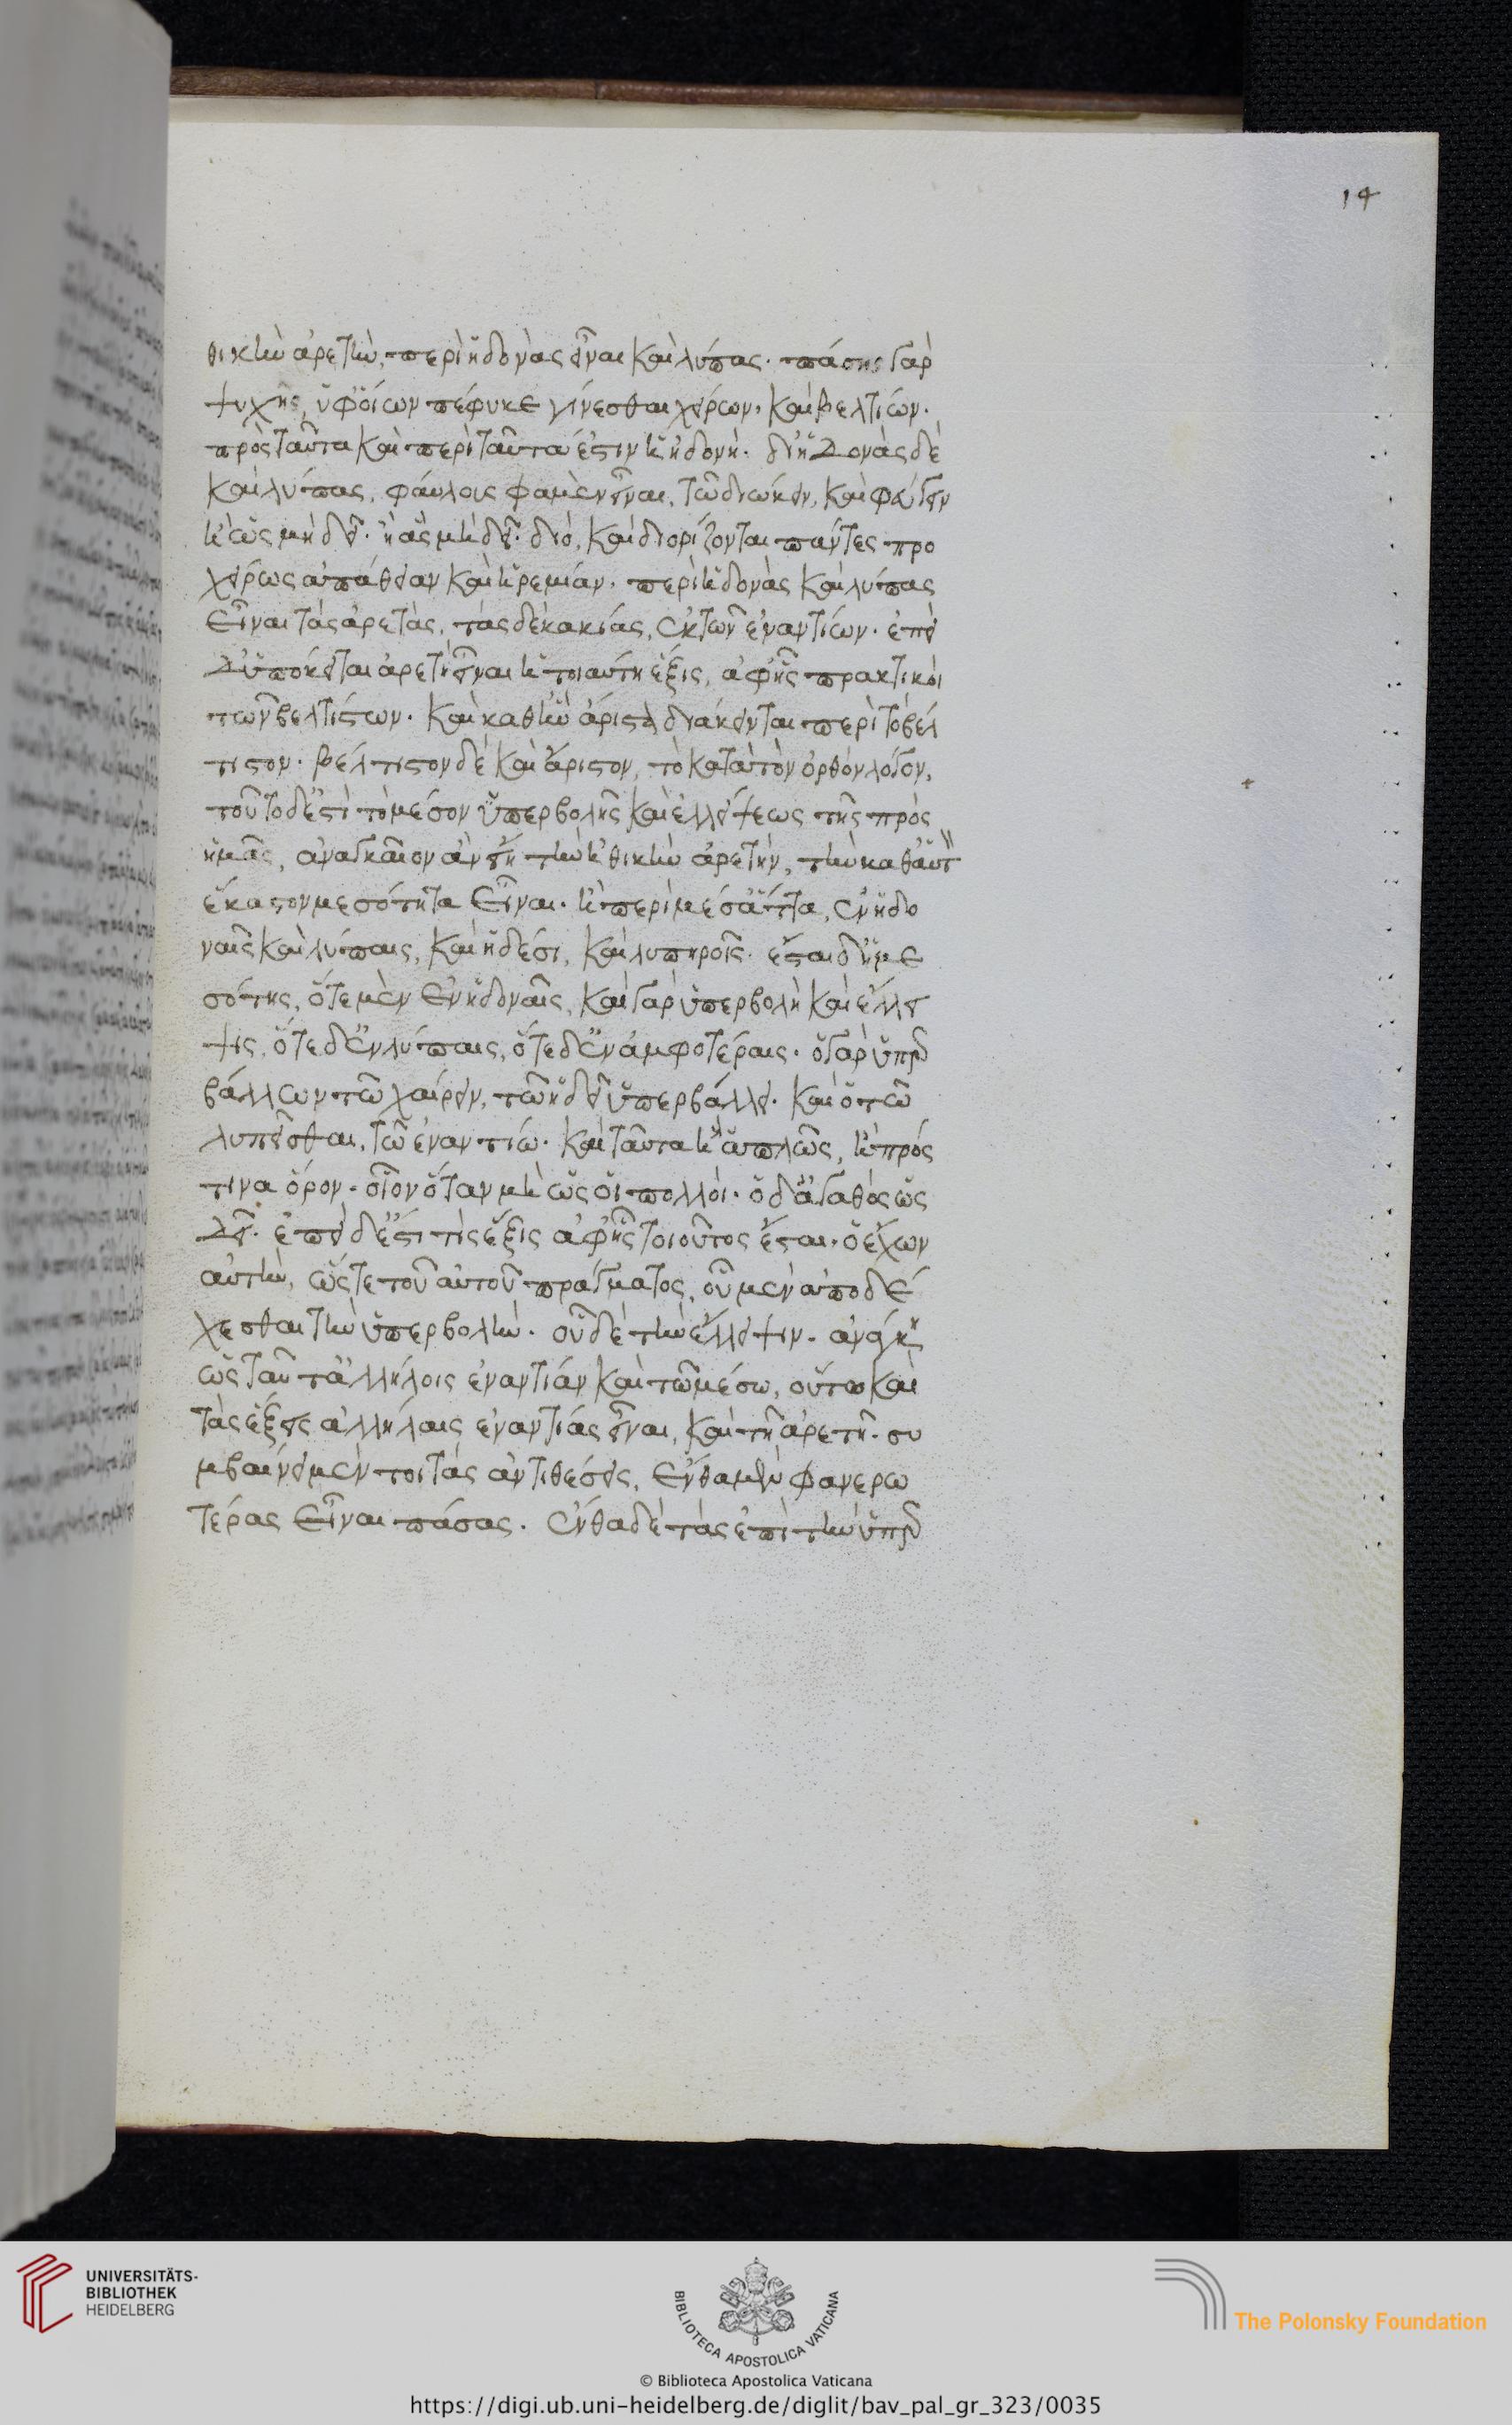 14
θικὴν ἀρετὴν, περὶ ἡδονὰς εἶναι καὶ λύπας. πάσης γὰρ
ψυχῆς, ὑφ' οἵων πέφυκε γίνεσθαι χείρων, καὶ βελτίων.
πρὸς ταῦτα καὶ περὶ ταῦτα ἐστιν ἡ ἡδονή. δι' ἡδονὰς δὲ
καὶ λύπας, φαύλους φαμὲν εἶναι, τῶ διώκειν, καὶ φεύγειν
ἢ ὡς μὴ δεῖ. ἢ ἃς μὴ δεῖ. διό, καὶ διορίζονται πάντες προ
χείρως ἀπάθειαν καὶ ἠρεμίαν. περὶ ἡδονὰς καὶ λύπας
εἶναι τὰς ἀρετὰς, τὰς δὲ κακίας, ἐκ τῶν ἐναντίων. ἐπεὶ
δ' ὑπόκειται ἀρετὴ εἶναι ἡ τοιαύτη ἕξις, ἀφ' ἧς πρακτικοὶ
τῶν βελτίστων. καὶ καθ' ἣν ἄριστα διάκεινται περὶ τὸ βέλ
τιστον. βέλτιστον δὲ καὶ ἄριστον, τὸ κατὰ τὸν ὀρθὸν λόγον,
τοῦτο δ' ἐστὶ τὸ μέσον ὑπερβολῆς καὶ ἐλλείψεως τῆς πρὸς
ἡμᾶς, ἀναγκαῖον ἂν εἴη τὴν ἠθικὴν ἀρετὴν, τὴν καθ' αὑτ
ἕκαστον μεσότητα εἶναι. ἢ περὶ μέσ' ἄττα, ἐν ἡδο
ναῖς καὶ λύπαις, καὶ ἡδέσι, καὶ λυπηροῖς. ἔσται δ' ἡ με
σότης, ὁτὲ μὲν ἐν ἡδοναῖς, καὶ γὰρ ὑπερβολὴ καὶ ἔλλει
ψις, ὁτὲ δ' ἐν λύπαις, ὁτὲ δ' ἐν ἀμφοτέραις. ὁ γὰρ ὑπερ
βάλλων τῶ χαίρειν, τῶ ἡδεῖ ὑπερβάλλει. καὶ ὁ τῶ
λυπεῖσθαι, τῶ ἐναντίω. καὶ ταῦτα ἢ ἁπλῶς, ἢ πρός
τινα ὅρον. οἷον ὅταν μὴ ὡς οἱ πολλοί. ὁ δ' ἀγαθὸς ὡς
δεῖ. ἐπεὶ δ' ἐστι τὶς ἕξις ἀφ' ἧς τοιοῦτος ἔσται. ὁ ἔχων
αὐτὴν, ὥστε τοῦ αὐτοῦ πράγματος, οὗ μὲν ἀποδέ
χεσθαι τὴν ὑπερβολὴν. οὗ δὲ τὴν ἔλλειψιν. ἀνάγκη
ὡς ταῦτ' ἀλλήλοις ἐναντία καὶ τῶ μέσω, οὕτω καὶ
τὰς ἕξεις ἀλλήλαις ἐναντίας εἶναι, καὶ τῆ ἀρετῆ. συ
μβαίνει μέντοι τὰς ἀντιθέσεις, ἔνθα μὲν φανερω
τέρας εἶναι πάσας. ἔνθα δὲ τὰς ἐπὶ τὴν ὑπερ
UNIVERSITÄTS-
BIBLIOTHEK
HEIDELBERG
BIBLIOTECA APOSTOLICA VATICANA
The Polonsky Foundation
© Biblioteca Apostolica Vaticana
https://digi.ub.uni-heidelberg.de/diglit/bav_pal_gr_323/0035